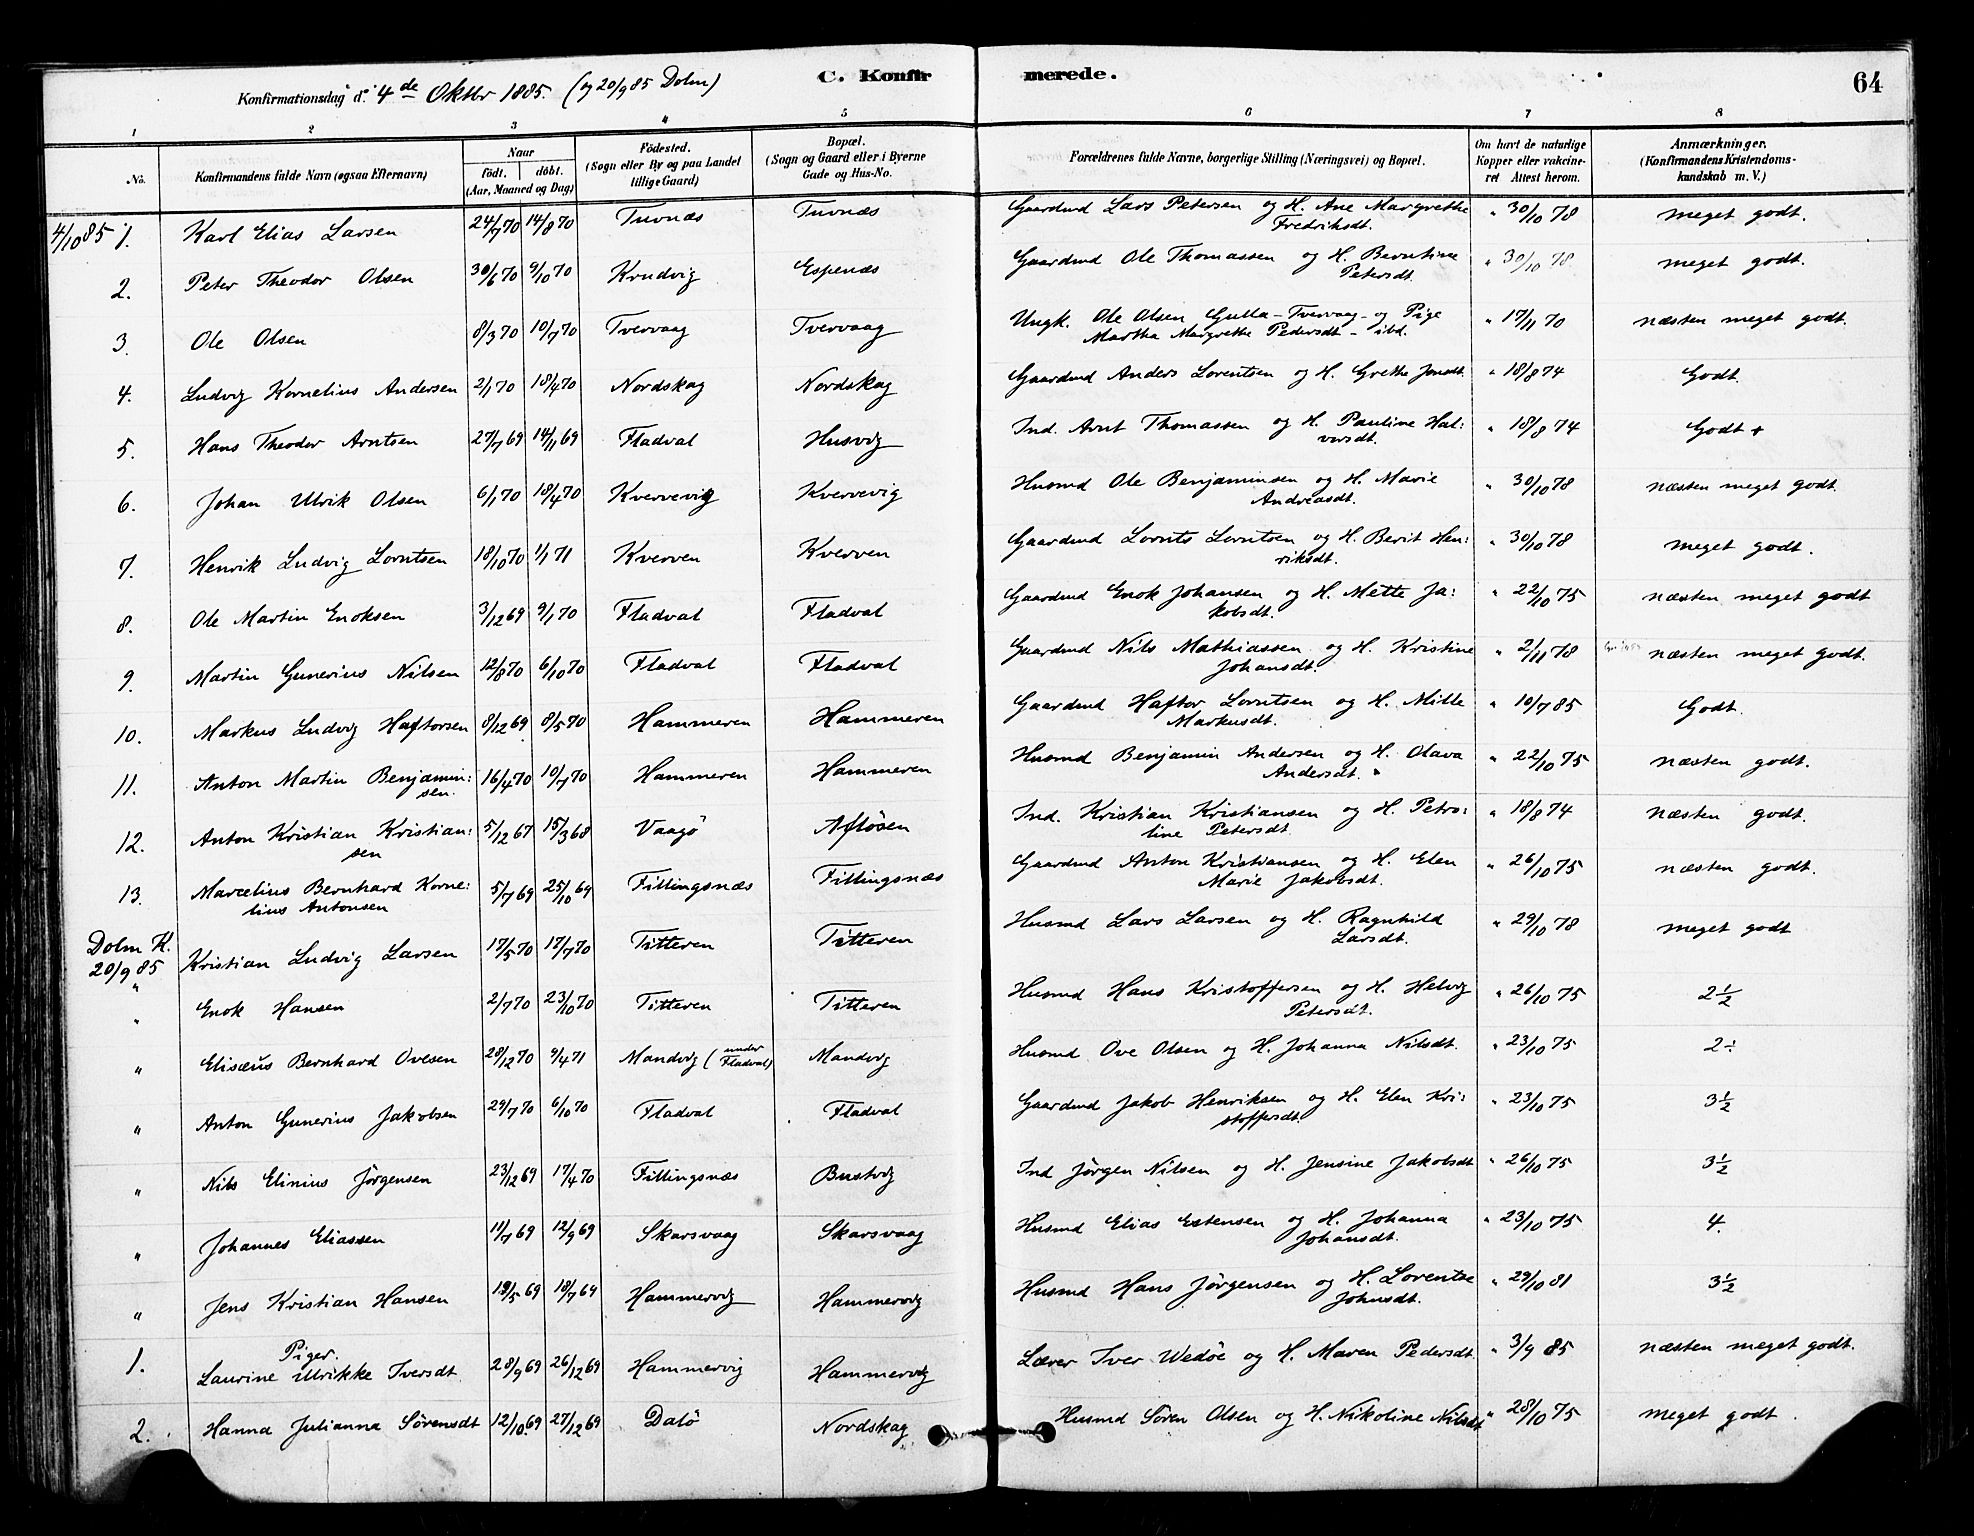 C. Konfirmerede. 64
Konfirmationsdag d. 4de Oktbr 1885. (og 20/9 85 Dolm)
1 2 3 4 5 6 7 8
No. Konfirmandens fulde Navn (ogsaa Efternavn) Naar födt. döbt. (Aar, Maaned og Dag) Födested. (Sogn eller By og paa Landet tillige Gaard) Bopæl. (Sogn og Gaard eller i Byerne Gade og Hus-No. Forældrenes fulde Navne, borgerlige Stilling (Næringsvei) og Bopæl. Om havt de naturlige Kopper eller vakcineret Attest herom. Anmærkninger. (Konfirmandens Kristendomskundskab m. V.)
4/10 85 1. Karl Elias Larsen 24/7 70 14/8 70 Tuvnæs Tuvnæs Gaardmd Lars Petersen og H. Ane Margrethe Fredriksdt. " 30/10 78 meget godt.
2. Peter Theodor Olsen 30/6 70 9/10 70 Kvudvig Espenæs Gaardmd Ole Thomassen og H. Berntine Petersdt. " 30/10 78 meget godt.
3. Ole Olsen 8/3 70 10/7 70 Tvervaag Tvervaag Ungk. Ole Olsen Gulla - Tvervaag - og Pige Martha Margrethe Pedersdt - ibd. " 17/11 70 næsten meget godt.
4. Ludvig Kornelius Andersen 2/1 70 18/4 70 Nordskag Nordskag Gaardmd Anders Lorentsen og H. Grethe Jonsdt. " 18/8 74 Godt.
5. Hans Theodor Arntsen 27/7 69 14/11 69 Fladval Husvig Ind. Arnt Thomassen og H. Pauline Halvorsdt. " 18/8 74 Godt +
6. Johan Ulrik Olsen 6/1 70 18/4 70 Kvervevig Kvervevig Husmd Ole Benjaminsen og H. Marie Andreasdt. " 30/10 78 næsten meget godt.
7. Henrik Ludvig Lorntsen 18/10 70 1/1 71 Kverven Kverven Gaardmd Lornts Lorntsen og H. Berit Henriksdt. " 30/10 78 meget godt.
8. Ole Martin Enoksen 3/12 69 9/1 70 Fladval Fladval Gaardmd Enok Johansen og H. Mette Jakobsdt. " 22/10 75 næsten meget godt
9. Martin Gunerius Nilsen 12/8 70 6/10 70 Fladval Fladval Gaardmd Nils Mathiassen og H. Kristine Johansdt. " 2/11 78 næsten meget godt.
10. Markus Ludvig Haftorsen 8/12 69 8/5 70 Hammeren Hammeren Gaardmd Haftor Lorntsen og H. Mille Markusdt. " 10/7 85 Godt.
11. Anton Martin Benjaminsen. 16/4 70 10/7 70 Hammeren Hammeren Husmd Benjamin Andersen og H. Olava Andersdt. " 22/10 75 næsten godt.
12. Anton Kristian Kristiansen 5/12 67 15/3 68 Vaagö Aflösen Ind. Kristian Kristiansen og H. Petroline Petersdt. " 18/8 74 næsten godt.
13. Marcelius Bernhard Kornelius Antonsen 5/7 69 25/10 69 Fillingsnæs Fillingsnæs Gaardmd Anton Kristiansen og H. Elen Marie Jakobsdt. " 26/10 75 næsten godt.
Dolm K. 20/9 85 " Kristian Ludvig Larsen 17/5 70 17/7 70 Titteren Titteren Husmd Lars Larsen og H. Ragnhild Larsdt. " 29/10 78 meget godt
" Enok Hansen 2/7 70 23/10 70 Titteren Titteren Husmd Hans Kristoffersen og H. Helvig Petersdt. " 26/10 75 2½
" Elisæus Bernhard Ovesen 28/12 70 9/4 71 Mandvig (under Fladval) Mandvig Husmd Ove Olsen og H. Johanna Nilsdt. " 23/10 75 2÷
" Anton Gunerius Jakobsen 29/7 70 6/10 70 Fladval Fladval Gaardmd Jakob Henriksen og H. Elen Kristoffersdt. " 23/10 75 3½
" Nils Elinius Jörgensen 23/12 69 17/4 70 Fillingsnæs Bustvig Ind Jörgen Nilsen og H. Jensine Jakobsdt " 26/10 75 3½
" Johannes Eliassen 11/7 69 12/9 69 Skarsvaag Skarsvaag Husmd Elias Estensen og H. Johanna Johansdt. " 23/10 75 4.
" Jens Kristian Hansen 19/5 69 18/7 69 Hammervig Hammervig Husmd Hans Jörgensen og H. Lorentse Johnsdt. " 29/10 81 3½
Piger.
1. Laurine Ulrikke Iversdt 28/9 69 26/12 69 Hammervig Hammervig Lærer Iver Wedöe og H. Maren Pedersdt. " 3/9 85 næsten meget godt.
2. Hanna Julianna Sörensdt 12/10 69 27/12 69 Dalö Nordskag Husmd Sören Olsen og H. Nikoline Nilsdt " 28/10 75 meget godt.